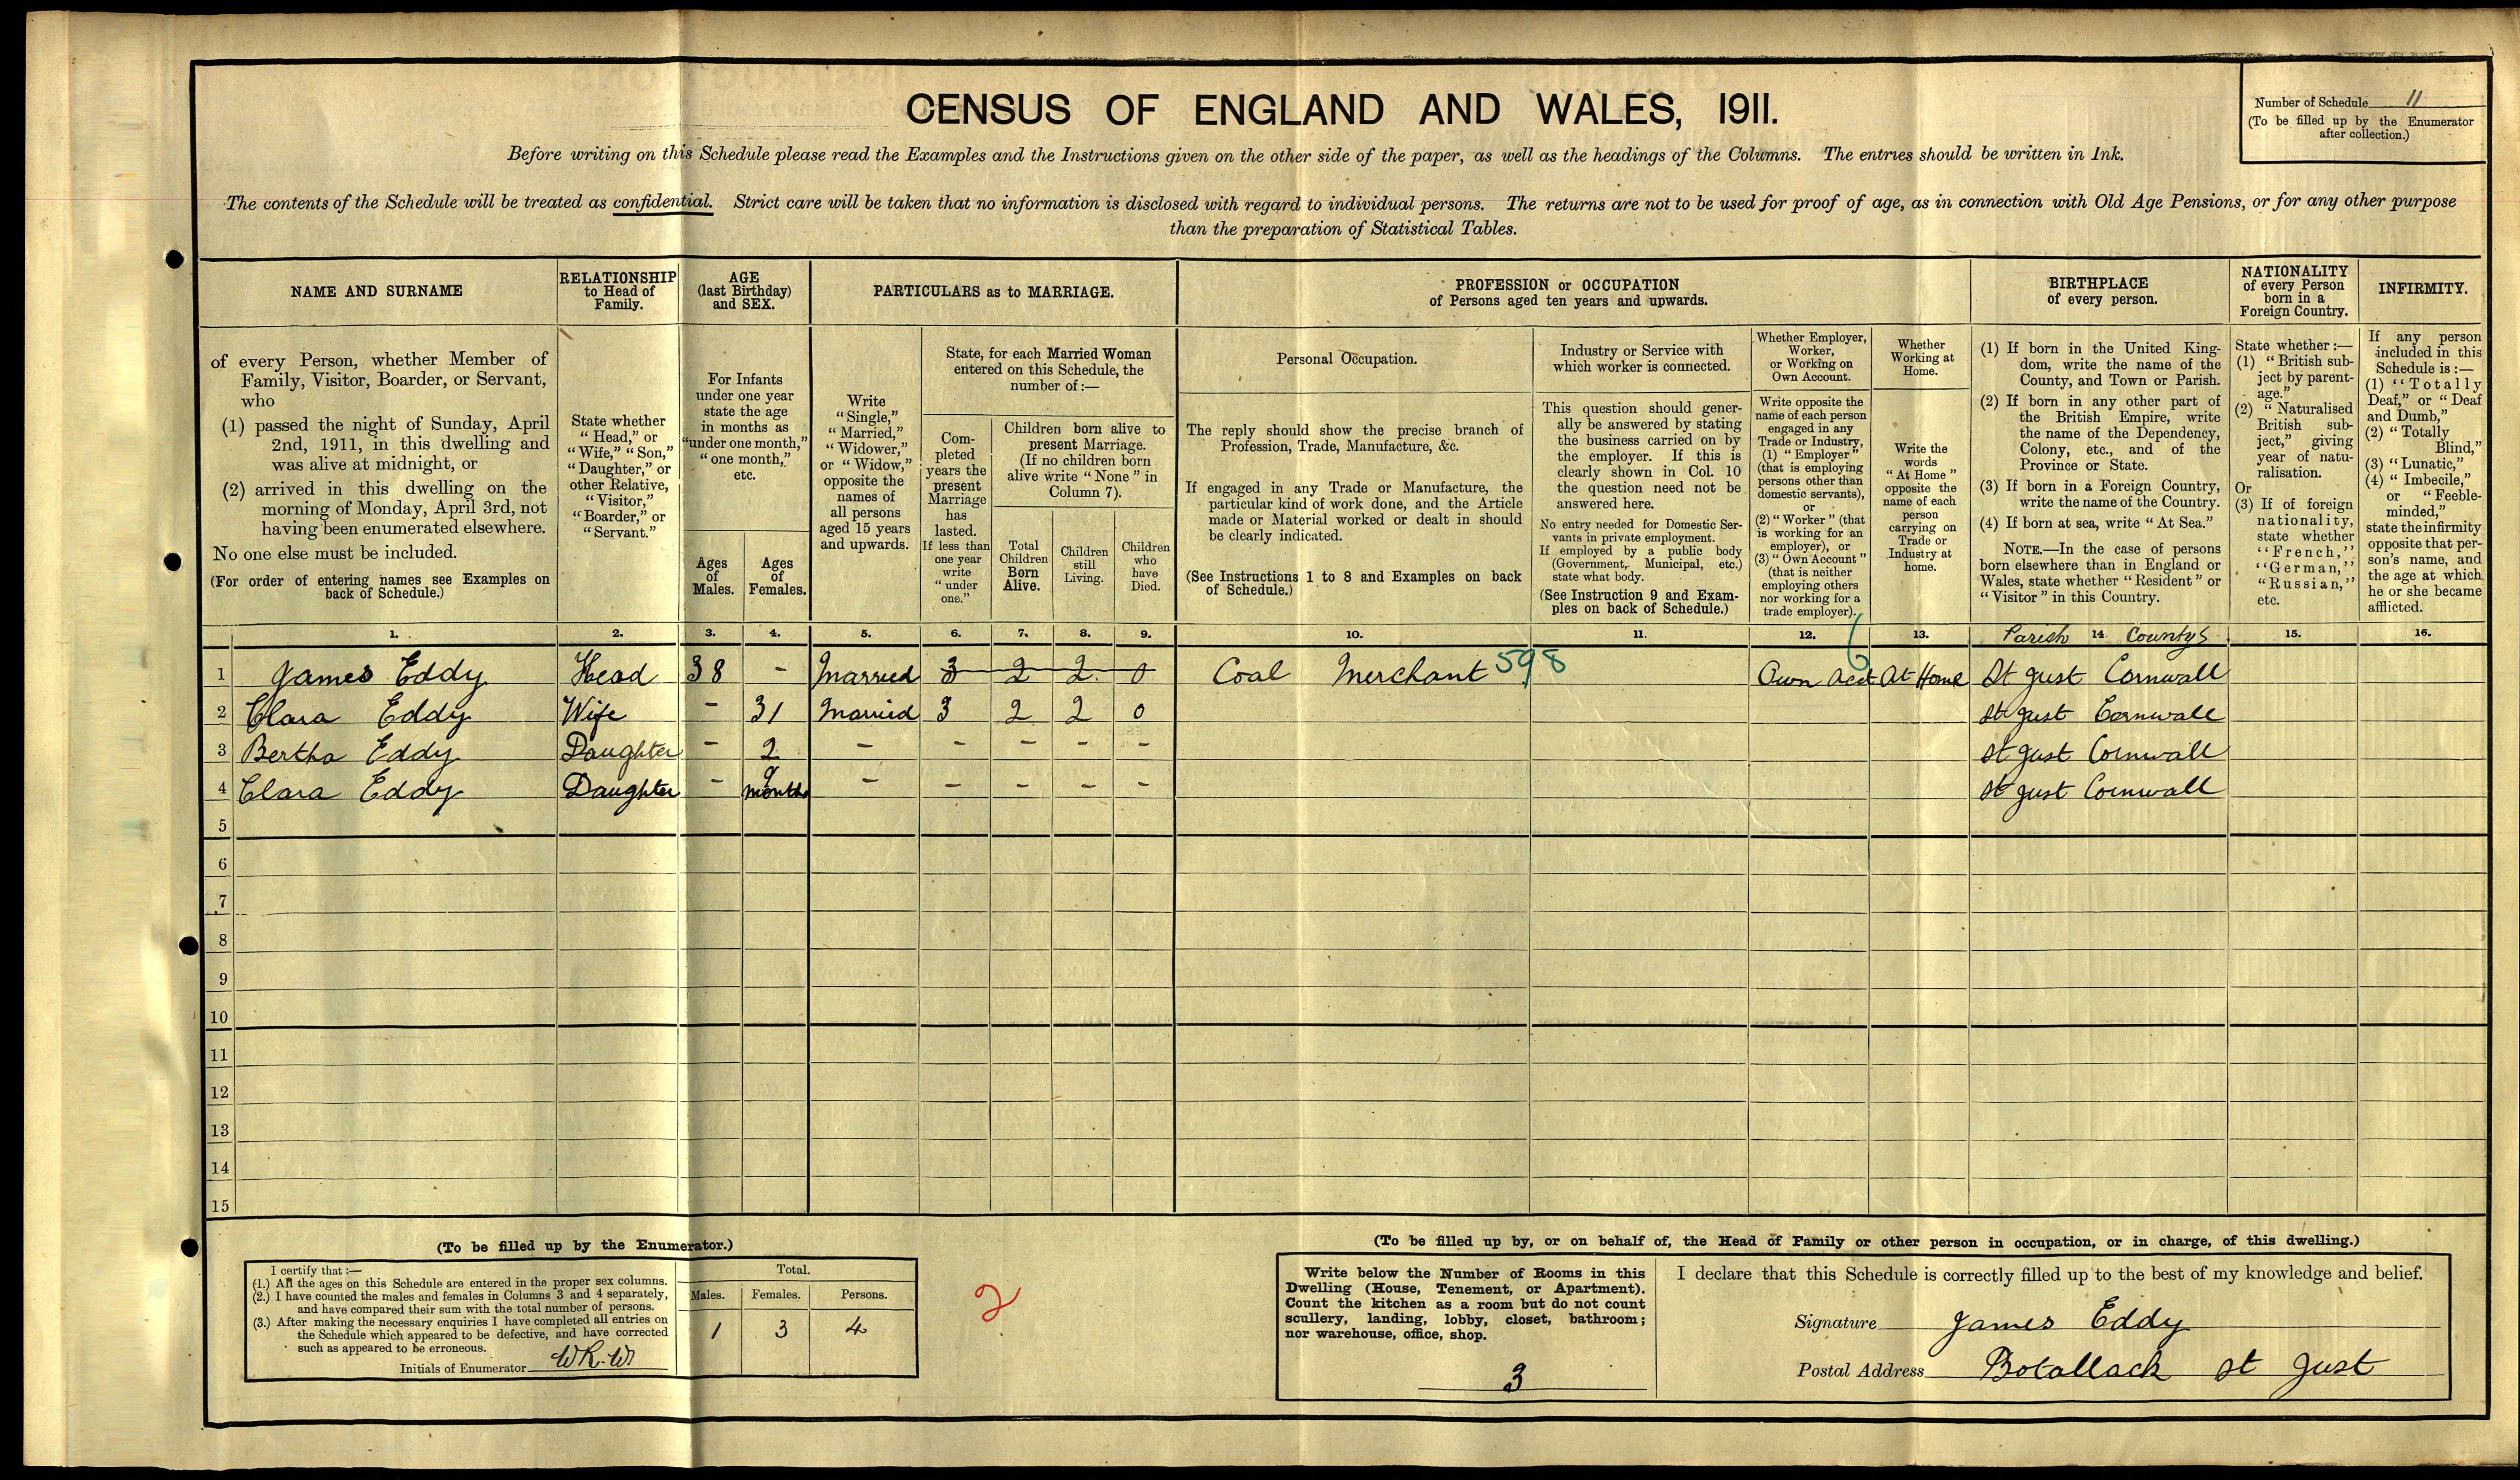 CENSUS OF ENGLAND AND WALES, 1911.
Number of Schedule 11
(To be filled up by the Enumerator
after collection.)
Before writing on this Schedule please read the Examples and the Instructions given on the other side of the paper, as well as the headings of the Columns. The entries should be written in Ink.
The contents of the Schedule will be treated as confidential. Strict care will be taken that no information is disclosed with regard to individual persons. The returns are not to be used for proof of age, as in connection with Old Age Pensions, or for any other purpose
than the preparation of Statistical Tables.
NAME AND SURNAME
of every Person, whether Member of
Family, Visitor, Boarder, or Servant,
who
(1) passed the night of Sunday, April
2nd, 1911, in this dwelling and
was alive at midnight, or
(2) arrived in this dwelling on the
morning of Monday, April 3rd, not
having been enumerated elsewhere.
No one else must be included.
(For order of entering names see Examples on
back of Schedule.)
RELATIONSHIP
to Head of
Family.
State whether
"Head," or
"Wife," "Son,"
"Daughter," or
other Relative,
"Visitor,"
"Boarder," or
"Servant."
AGE
(last Birthday)
and SEX.
For Infants
under one year
state the age
in months as
"under one month,"
"one month,"
etc.
Ages
of
Males.
Ages
of
Females.
PARTICULARS as to MARRIAGE.
Write
"Single,"
"Married,"
"Widower,"
or "Widow,"
opposite the
names of
all persons
aged 15 years
and upwards.
State, for each Married Woman
entered on this Schedule, the
number of :—
Com-
pleted
years the
present
Marriage
has
lasted.
If less than
one year
write
"under
one."
Children born alive to
present Marriage.
(If no children born
alive write "None" in
Column 7).
Total
Children
Born
Alive.
Children
still
Living.
Children
who
have
Died.
PROFESSION or OCCUPATION
of Persons aged ten years and upwards.
Personal Occupation.
The reply should show the precise branch of
Profession, Trade, Manufacture, &c.
If engaged in any Trade or Manufacture, the
particular kind of work done, and the Article
made or Material worked or dealt in should
be clearly indicated.
(See Instructions 1 to 8 and Examples on back
of Schedule.)
Industry or Service with
which worker is connected.
This question should gener-
ally be answered by stating
the business carried on by
the employer. If this is
clearly shown in Col. 10
the question need not be
answered here.
No entry needed for Domestic Ser-
vants in private employment.
If employed by a public body
(Government, Municipal, etc.)
state what body.
(See Instruction 9 and Exam-
ples on back of Schedule.)
Whether Employer,
Worker,
or Working on
Own Account.
Write opposite the
name of each person
engaged in any
Trade or Industry,
(1) "Employer"
(that is employing
persons other than
domestic servants),
or
(2) "Worker" (that
is working for an
employer), or
(3) "Own Account"
(that is neither
employing others
nor working for a
trade employer).
Whether
Working at
Home.
Write the
words
"At Home"
opposite the
name of each
person
carrying on
Trade or
Industry at
home.
BIRTHPLACE
of every person.
(1) If born in the United King-
dom, write the name of the
County, and Town or Parish.
(2) If born in any other part of
the British Empire, write
the name of the Dependency,
Colony, etc., and of the
Province or State.
(3) If born in a Foreign Country,
write the name of the Country.
(4) If born at sea, write "At Sea."
NOTE.—In the case of persons
born elsewhere than in England or
Wales, state whether "Resident" or
"Visitor" in this Country.
NATIONALITY
of every Person
born in a
Foreign Country.
State whether :—
(1) "British sub-
ject by parent-
age."
(2) "Naturalised
British sub-
ject," giving
year of natu-
ralisation.
Or
(3) If of foreign
nationality,
state whether
"French,"
"German,"
"Russian,"
etc.
INFIRMITY.
If any person
included in this
Schedule is :—
(1) "Totally
Deaf," or "Deaf
and Dumb,"
(2) "Totally
Blind,"
(3) "Lunatic,"
(4) "Imbecile,"
or "Feeble-
minded,"
state the infirmity
opposite that per-
son's name, and
the age at which
he or she became
afflicted.
1. 2. 3. 4. 5. 6. 7. 8. 9. 10. 11. 12. 13. Parish 14. County 15. 16.
1 James Eddy Head 38 - Married 3 2 2 0 Coal Merchant 598 6 Own Acct At Home St Just Cornwall
2 Clara Eddy Wife - 31 Married 3 2 2 0 St Just Cornwall
3 Bertha Eddy Daughter - 2 - - - - - St Just Cornwall
4 Clara Eddy Daughter - 9 months - - - - - St Just Cornwall
5
6
7
8
9
10
11
12
13
14
15
(To be filled up by the Enumerator.)
I certify that :—
(1.) All the ages on this Schedule are entered in the proper sex columns.
(2.) I have counted the males and females in Columns 3 and 4 separately,
and have compared their sum with the total number of persons.
(3.) After making the necessary enquiries I have completed all entries on
the Schedule which appeared to be defective, and have corrected
such as appeared to be erroneous.
Initials of Enumerator WR.W
Total.
Males. Females. Persons.
1 3 4
2
(To be filled up by, or on behalf of, the Head of Family or other person in occupation, or in charge, of this dwelling.)
Write below the Number of Rooms in this
Dwelling (House, Tenement, or Apartment).
Count the kitchen as a room but do not count
scullery, landing, lobby, closet, bathroom;
nor warehouse, office, shop.
3
I declare that this Schedule is correctly filled up to the best of my knowledge and belief.
Signature James Eddy
Postal Address Botallack St Just